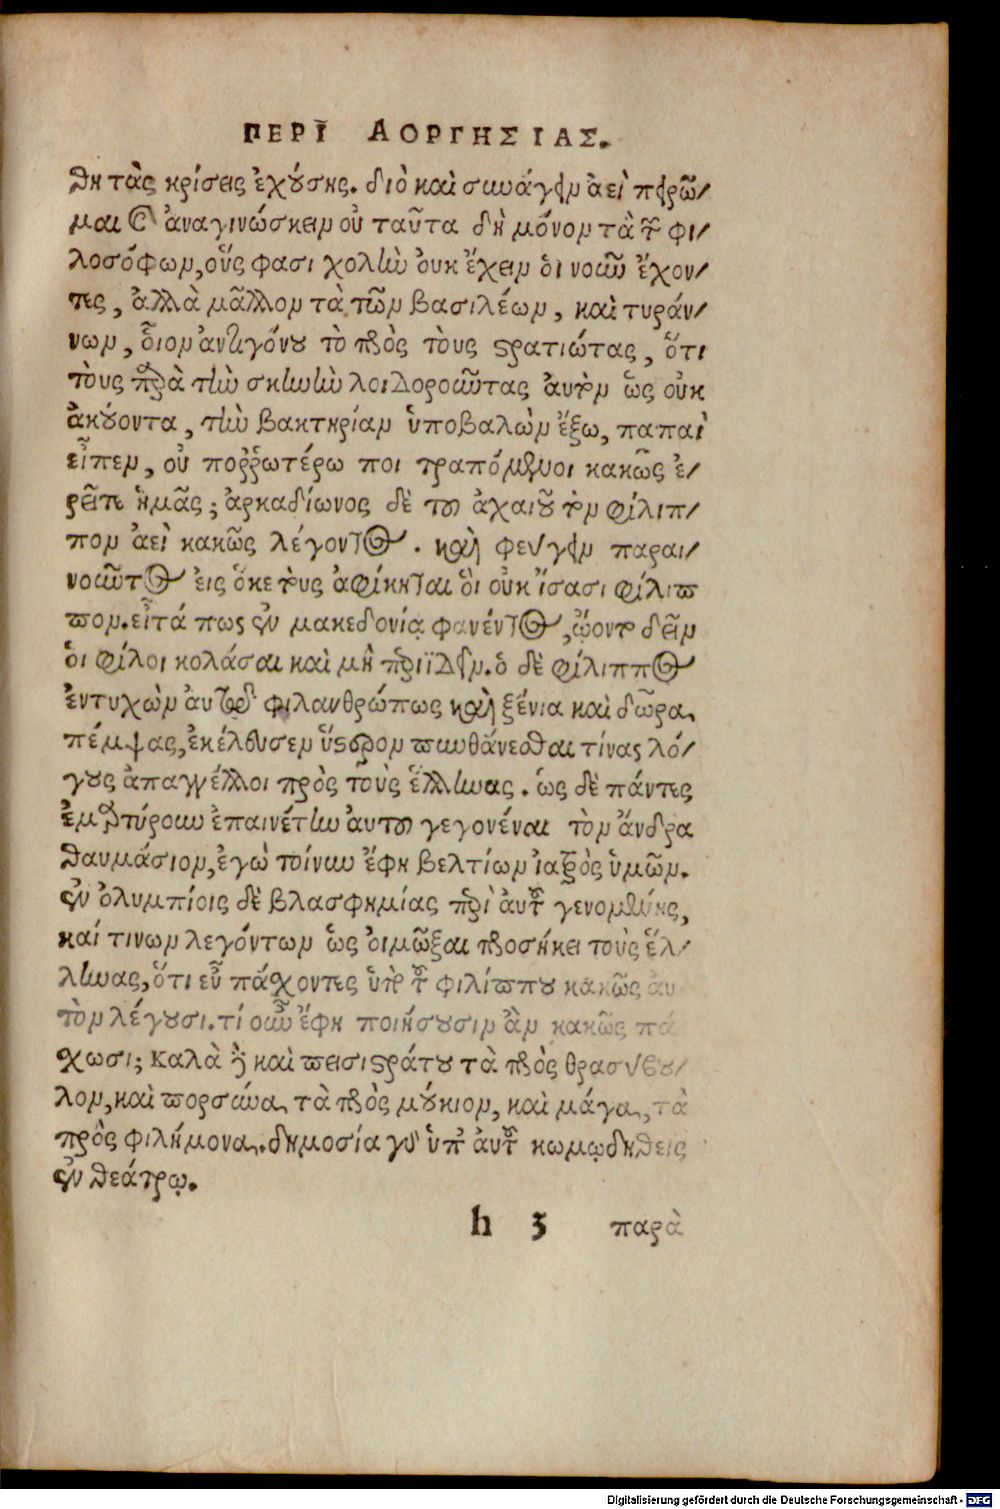 ΠΕΡῚ ΑΟΡΓΗΣΙΑΣ.
θη τὰς κρίσεις ἐχούσης. διὸ καὶ συνάγειν ἀεὶ πειρῶ/
μαι καὶ ἀναγινώσκειν οὐ ταῦτα δὴ μόνον τὰ τῶν φι/
λοσόφων, οὕς φασι χολὴν ὀυκ ἔχειν ὁι νοῦν ἔχον/
τες, ἀλλὰ μᾶλλον τὰ τῶν βασιλέων, καὶ τυράν/
νων, ὅιον ἀντιγόνου τὸ πρὸς τοὺς στρατιώτας, ὅτι
τοὺς παρὰ τὴν σκηνὴν λοιδοροῦντας ἀυτὸν ὡς οὐκ
ἀκούοντα, τὴν βακτηρίαν ὑποβαλὼν ἔξω, παπαὶ
εἶπεν, οὐ πορρωτέρω ποι τραπόμενοι κακῶς ἐ/
ρεῖτε ἡμᾶς; ἀρκαδίωνος δὲ τοῦ ἀχαιοῦ τὸν φίλιπ/
πον ἀεὶ κακῶς λέγοντος. καὶ φεύγειν παραι/
νοῦντος εἰς ὅκε τοὺς ἀφίκηται ὃι οὐκ ἴσασι φίλιπ
πον. εἶτά πως ἐν μακεδονίᾳ φανέντος, ᾤοντο δεῖν
ὁι φίλοι κολάσαι καὶ μὴ περιϊδεῖν. ὁ δὲ φίλιππος
ἐντυχὼν ἀυτῷ φιλανθρώπως καὶ ξένια καὶ δῶρα
πέμψας, ἐκέλευσεν ὕστερον πυνθάνεσθαι τίνας λό/
γους ἀπαγγέλλοι πρὸς τοὺς ἕλληνας. ὡς δὲ πάντες
ἐμαρτύρουν ἐπαινέτην ἀυτοῦ γεγονέναι τὸν ἄνδρα
θαυμάσιον, ἐγὼ τοίνυν ἔφη βελτίων ἰατρὸς ὑμῶν.
ἐν ὀλυμπίοις δὲ βλασφημίας περὶ ἀυτοῦ γενομένης,
καί τινων λεγόντων ὡς ὀιμῶξαι προσήκει τοὺς ἕλ/
ληνας, ὅτι εὖ πάσχοντες ὑπὸ τοῦ φιλίππου κακῶς ἀυ
τὸν λέγουσι. τί οὖν ἔφη ποιήσουσιν ἂν κακῶς πά
χωσι; καλὰ δὲ καὶ πεισιστράτου τὰ πρὸς θρασύβου/
λον, καὶ πορσώα τὰ πρὸς μούκιον, καὶ μάγα, τὰ
πρὸς φιλήμονα. δημοσίᾳ γὰρ ὑπ' ἀυτοῦ κωμῳδηθεὶς
ἐν θεάτρῳ.
h 3 παρὰ
Digitalisierung gefördert durch die Deutsche Forschungsgemeinschaft - DFG